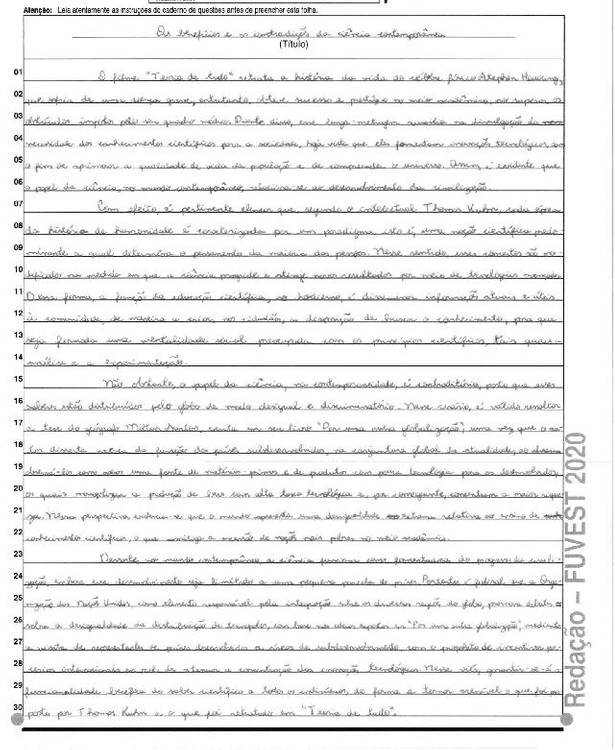 Atenção: Leia atentamente as instruções do caderno de questões antes de preencher esta folha.
Os benefícios e as contradições da ciência contemporânea
(Título)
01 O filme "Teoria de tudo" retrata a história da vida do célebre físico Stephen Hawking,
02 que sofria de uma doença grave, entretanto, obteve sucesso e prestígio no meio acadêmico, ao superar os
03 obstáculos impostos pelo seu quadro médico. Diante disso, esse longa-metragem auxilia na divulgação da
04 necessidade dos conhecimentos científicos para a sociedade, haja vista que eles fomentam inovações tecnológicas, com
05 o fim de aprimorar a qualidade de vida da população e de compreender o universo. Assim, é evidente que
06 o papel da ciência, no mundo contemporâneo, relaciona-se ao desenvolvimento da civilização.
07 Com efeito, é pertinente elencar que segundo o intelectual Thomas Kuhn, cada época
08 da história da humanidade é caracterizada por um paradigma, isto é, uma noção científica predo-
09 minante a qual determina o pensamento da maioria das pessoas. Nesse sentido, esses conceitos são mo-
10 dificados na medida em que a ciência progride e atinge novos resultados por meio de tecnologias avançadas.
11 Dessa forma, a função da educação científica, no hodierno, é disseminar informações atuais e úteis
12 à comunidade, de maneira a criar, nos cidadãos, a disposição de buscar o conhecimento, para que
13 seja formada uma mentalidade social preocupada com os princípios científicos, tais quais
14 análise e a experimentação.
15 Não obstante, o papel da ciência, na contemporaneidade, é contraditório, posto que esses
16 saberes estão distribuídos pelo globo de modo desigual e discriminatório. Nesse cenário, é válido ressaltar
17 a tese do geógrafo Milton Santos, escrita em seu livro "Por uma outra globalização", uma vez que o au-
18 tor disserta acerca da função dos países subdesenvolvidos, na conjuntura global da atualidade, ao
19 como uma fonte de matérias-primas e de produtos com pouca tecnologia para os desenvolvidos,
20 os quais monopolizam a produção de bens com alta taxa tecnológica e, por conseguinte, concentram a maior rique-
21 za. Nessa perspectiva, evidencia-se que o mundo apresenta uma desigualdade relativa ao ensino de
22 conhecimentos científicos, o que mitiga a ascensão de nações mais pobres no meio acadêmico.
23 Destarte, no mundo contemporâneo, a ciência funciona como fomentadora do progresso da civili-
24 zação, embora esse desenvolvimento seja limitado a uma pequena parcela de países. Portanto, é que a Orga-
25 nização das Nações Unidas, como elemento responsável pela integração entre as diversas nações do globo, promova debates
26 sobre a desigualdade da distribuição de tecnologias, com base nas ideias expostas em "Por uma outra globalização", mediante
27 a de países desenvolvidos e países de subdesenvolvimento, com o propósito de incentivar par-
28 cerias internacionais a fim de atenuar a concentração das inovações tecnológicas. Nesse viés, garantir-se-á a
29 funcionalidade benéfica do saber científico a todos os indivíduos, de forma a tornar o que foi pro-
30 posto por Thomas Kuhn e o que foi retratado em "Teoria de tudo".
Redação – FUVEST 2020